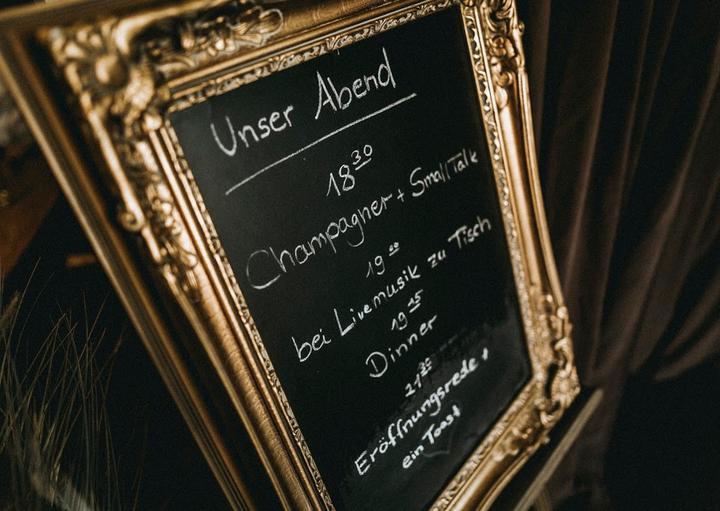 Unser Abend
18³⁰
Champagner + Small Talk
19⁰⁰
bei Livemusik zu Tisch
19¹⁵
Dinner
21³⁰
Eröffnungsrede +
ein Toast